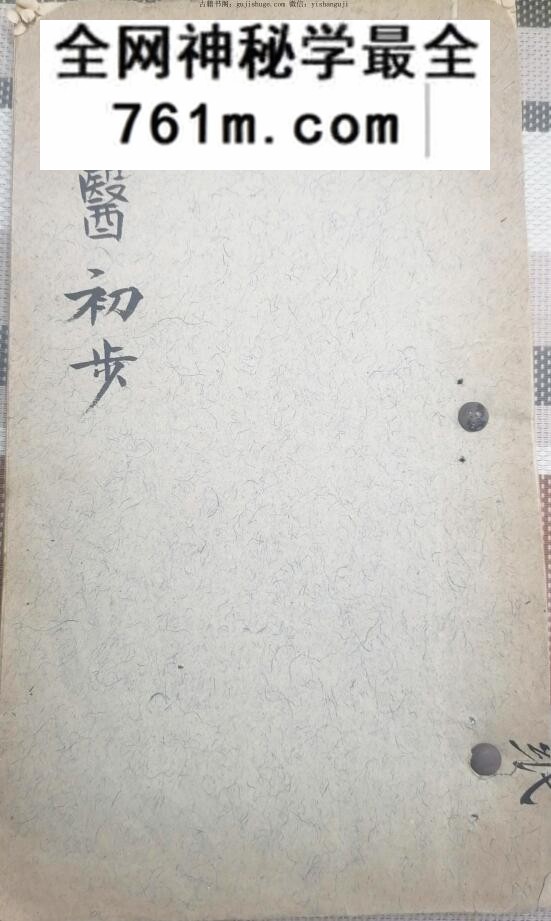 古籍书阁：gujishuge.com 微信：yishanguji
全网神秘学最全
761m.com
醫初步